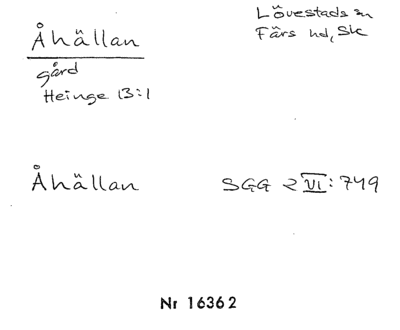 Åhällan
Lövestads sn
Färs hd, Sk
gård
Heinge 13:1
Åhällan
SGG 2 VI: 749
Nr 16362